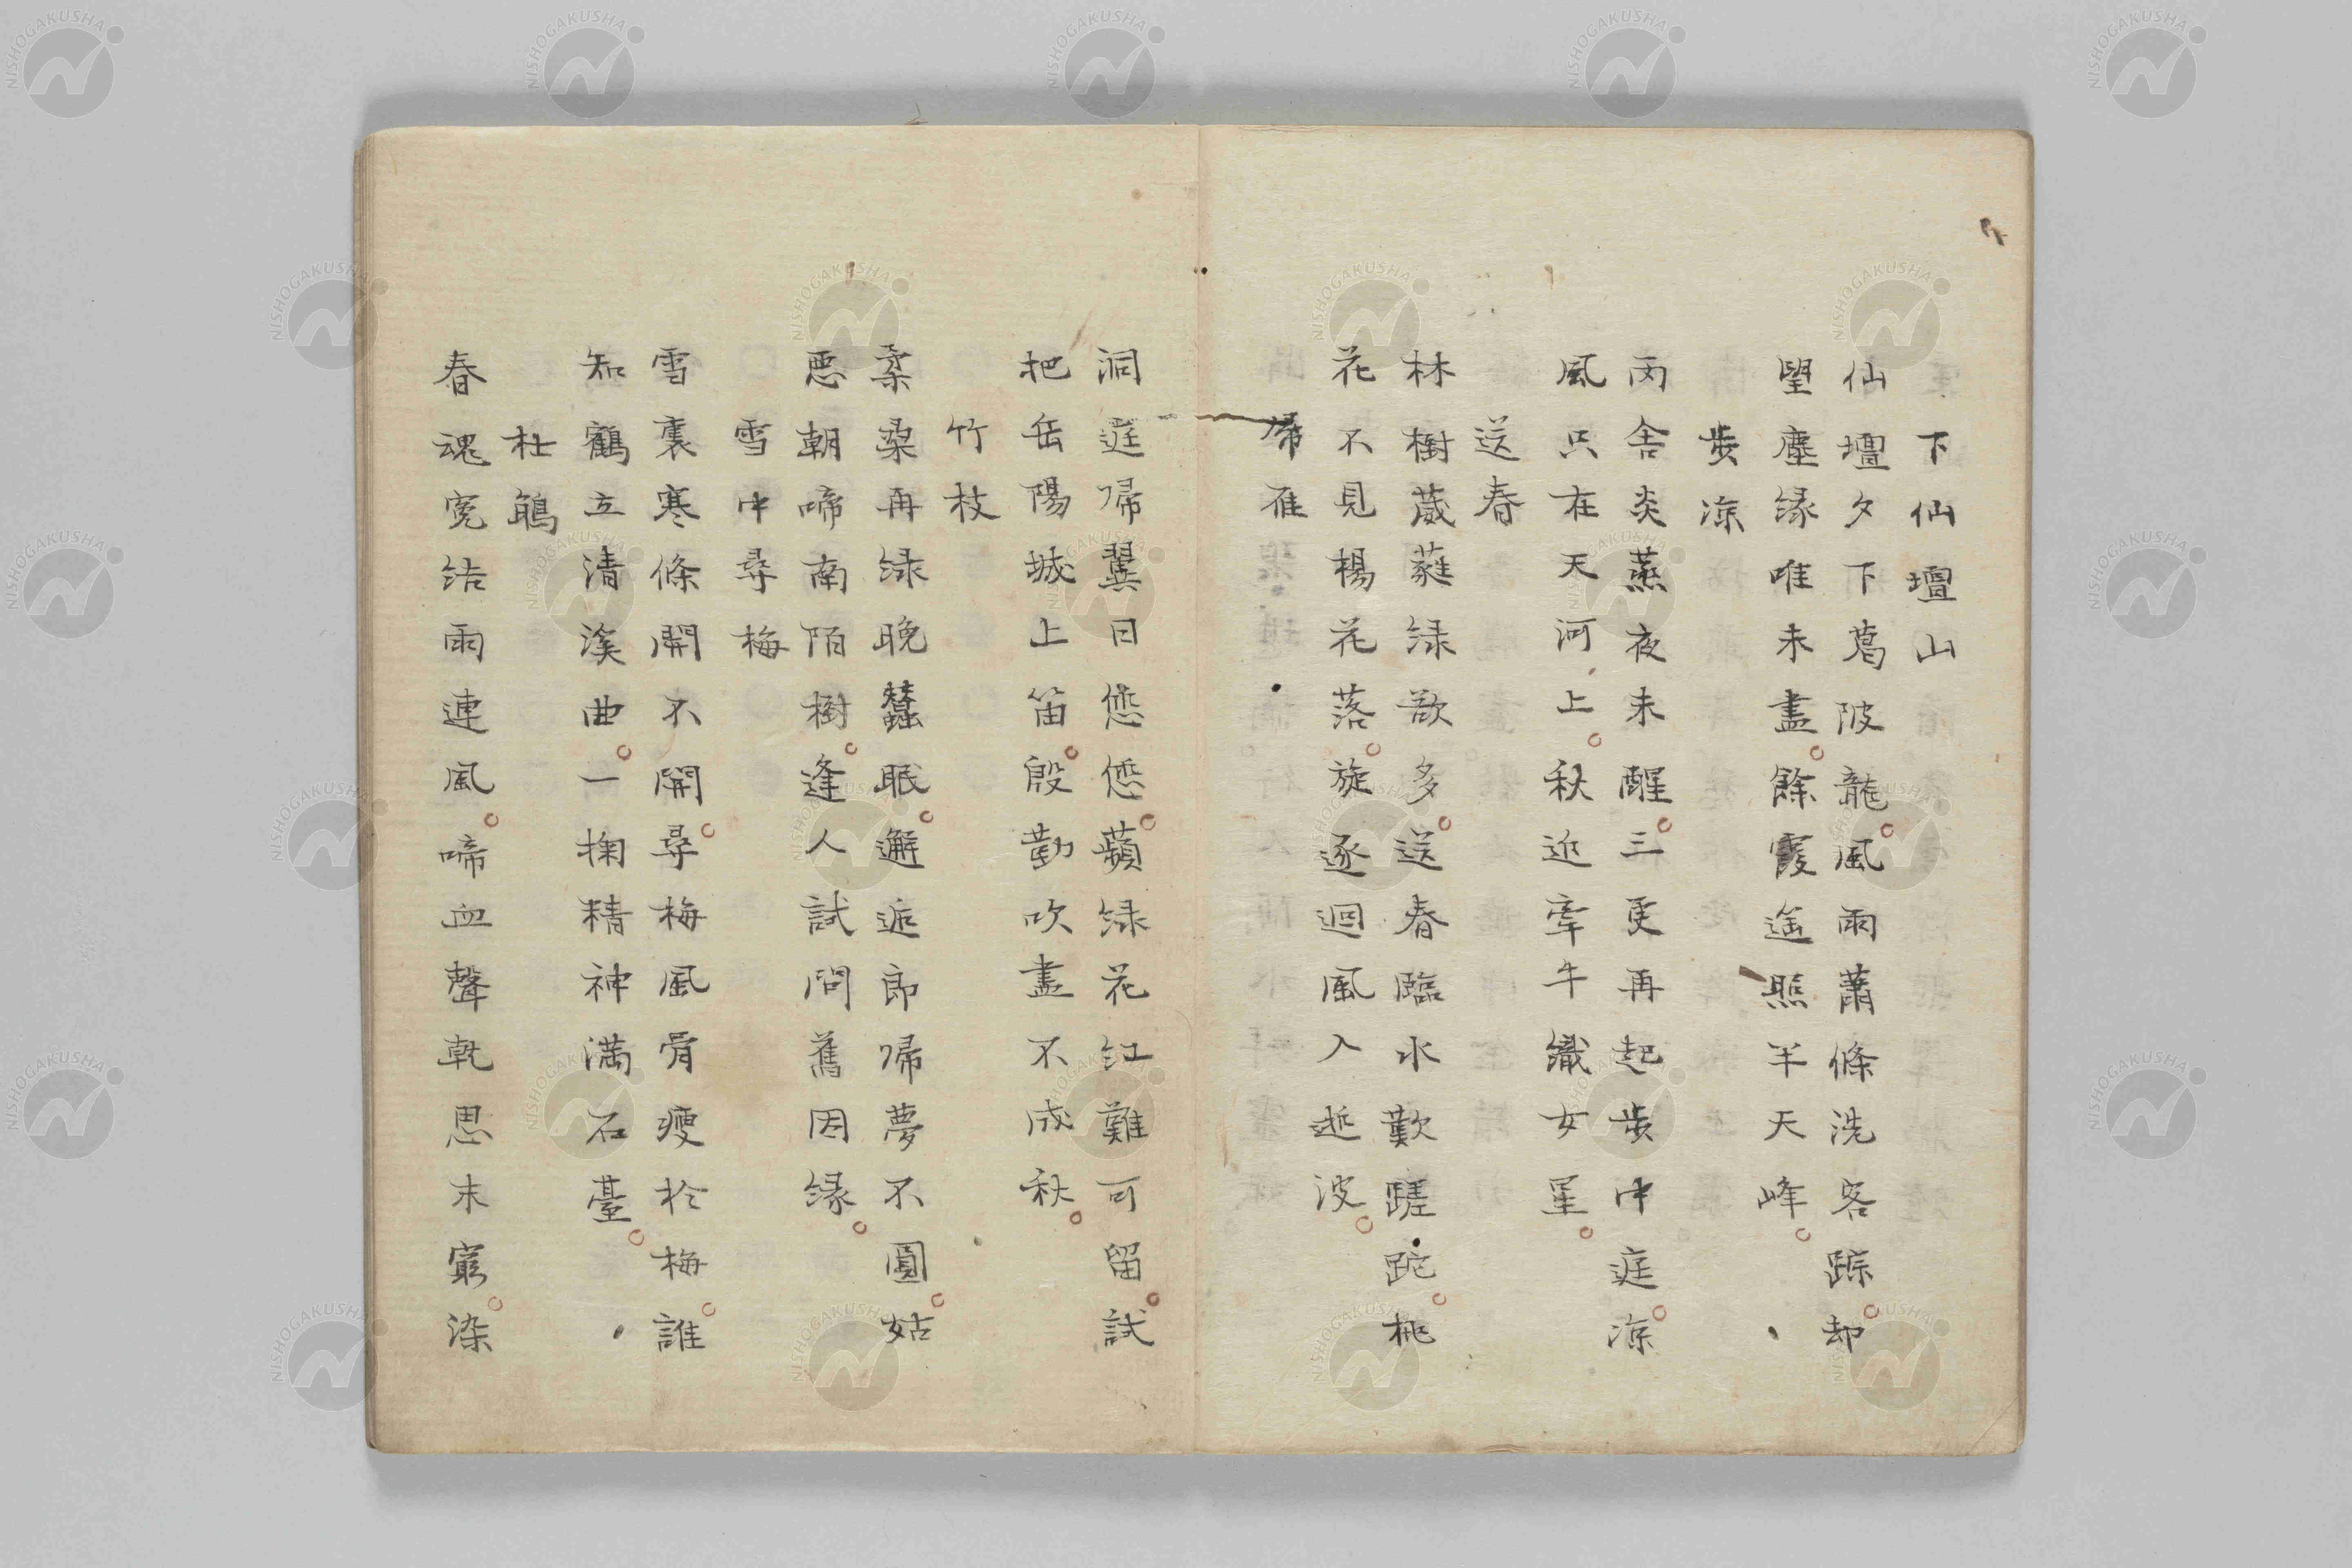 下仙壇山
仙壇夕下葛陂龍風雨蕭條洗客踪却
望塵縁唯未盡餘霞遥照半天峰
歩涼
丙舎炎蒸夜未醒三更再起歩中庭涼
風只在天河上秋近牽牛織女星
送春
林樹葳蕤緑歖多送春臨水歎蹉跎桃
花不見楊花落旋逐迴風入逝波
帰雁
洞庭帰翼日怱怱蘋緑花紅難可留試
把岳陽城上笛殷勤吹盡不成秋
竹枝
柔桑再緑晩蠶眠邂逅郎帰夢不圓姑
悪朝啼南陌樹逢人試問舊因縁
雪中尋梅
雪裏寒條開不開尋梅風骨痩於梅誰
知鶴立清溪曲一掬精神満石臺
杜鵑
春魂寃結雨連風啼血聲乾思未窮染
NISHOGAKUSHA